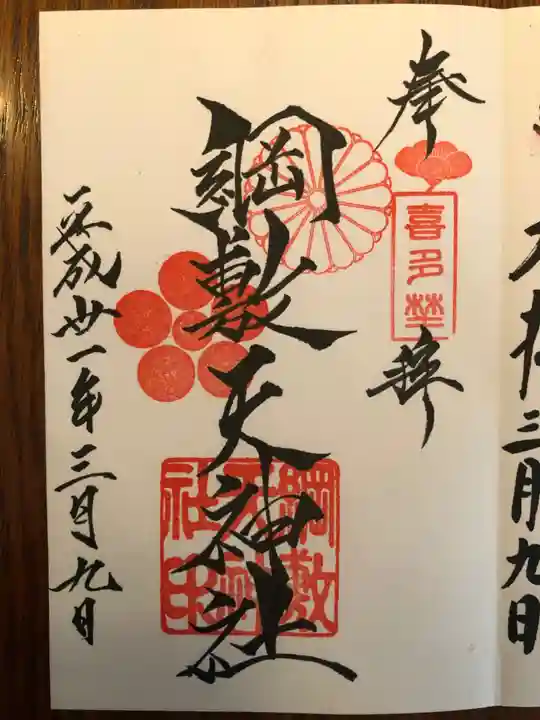 奉拝
喜多埜
綱敷天神社
綱敷
天神
社印
平成丗一年三月九日
三月九日